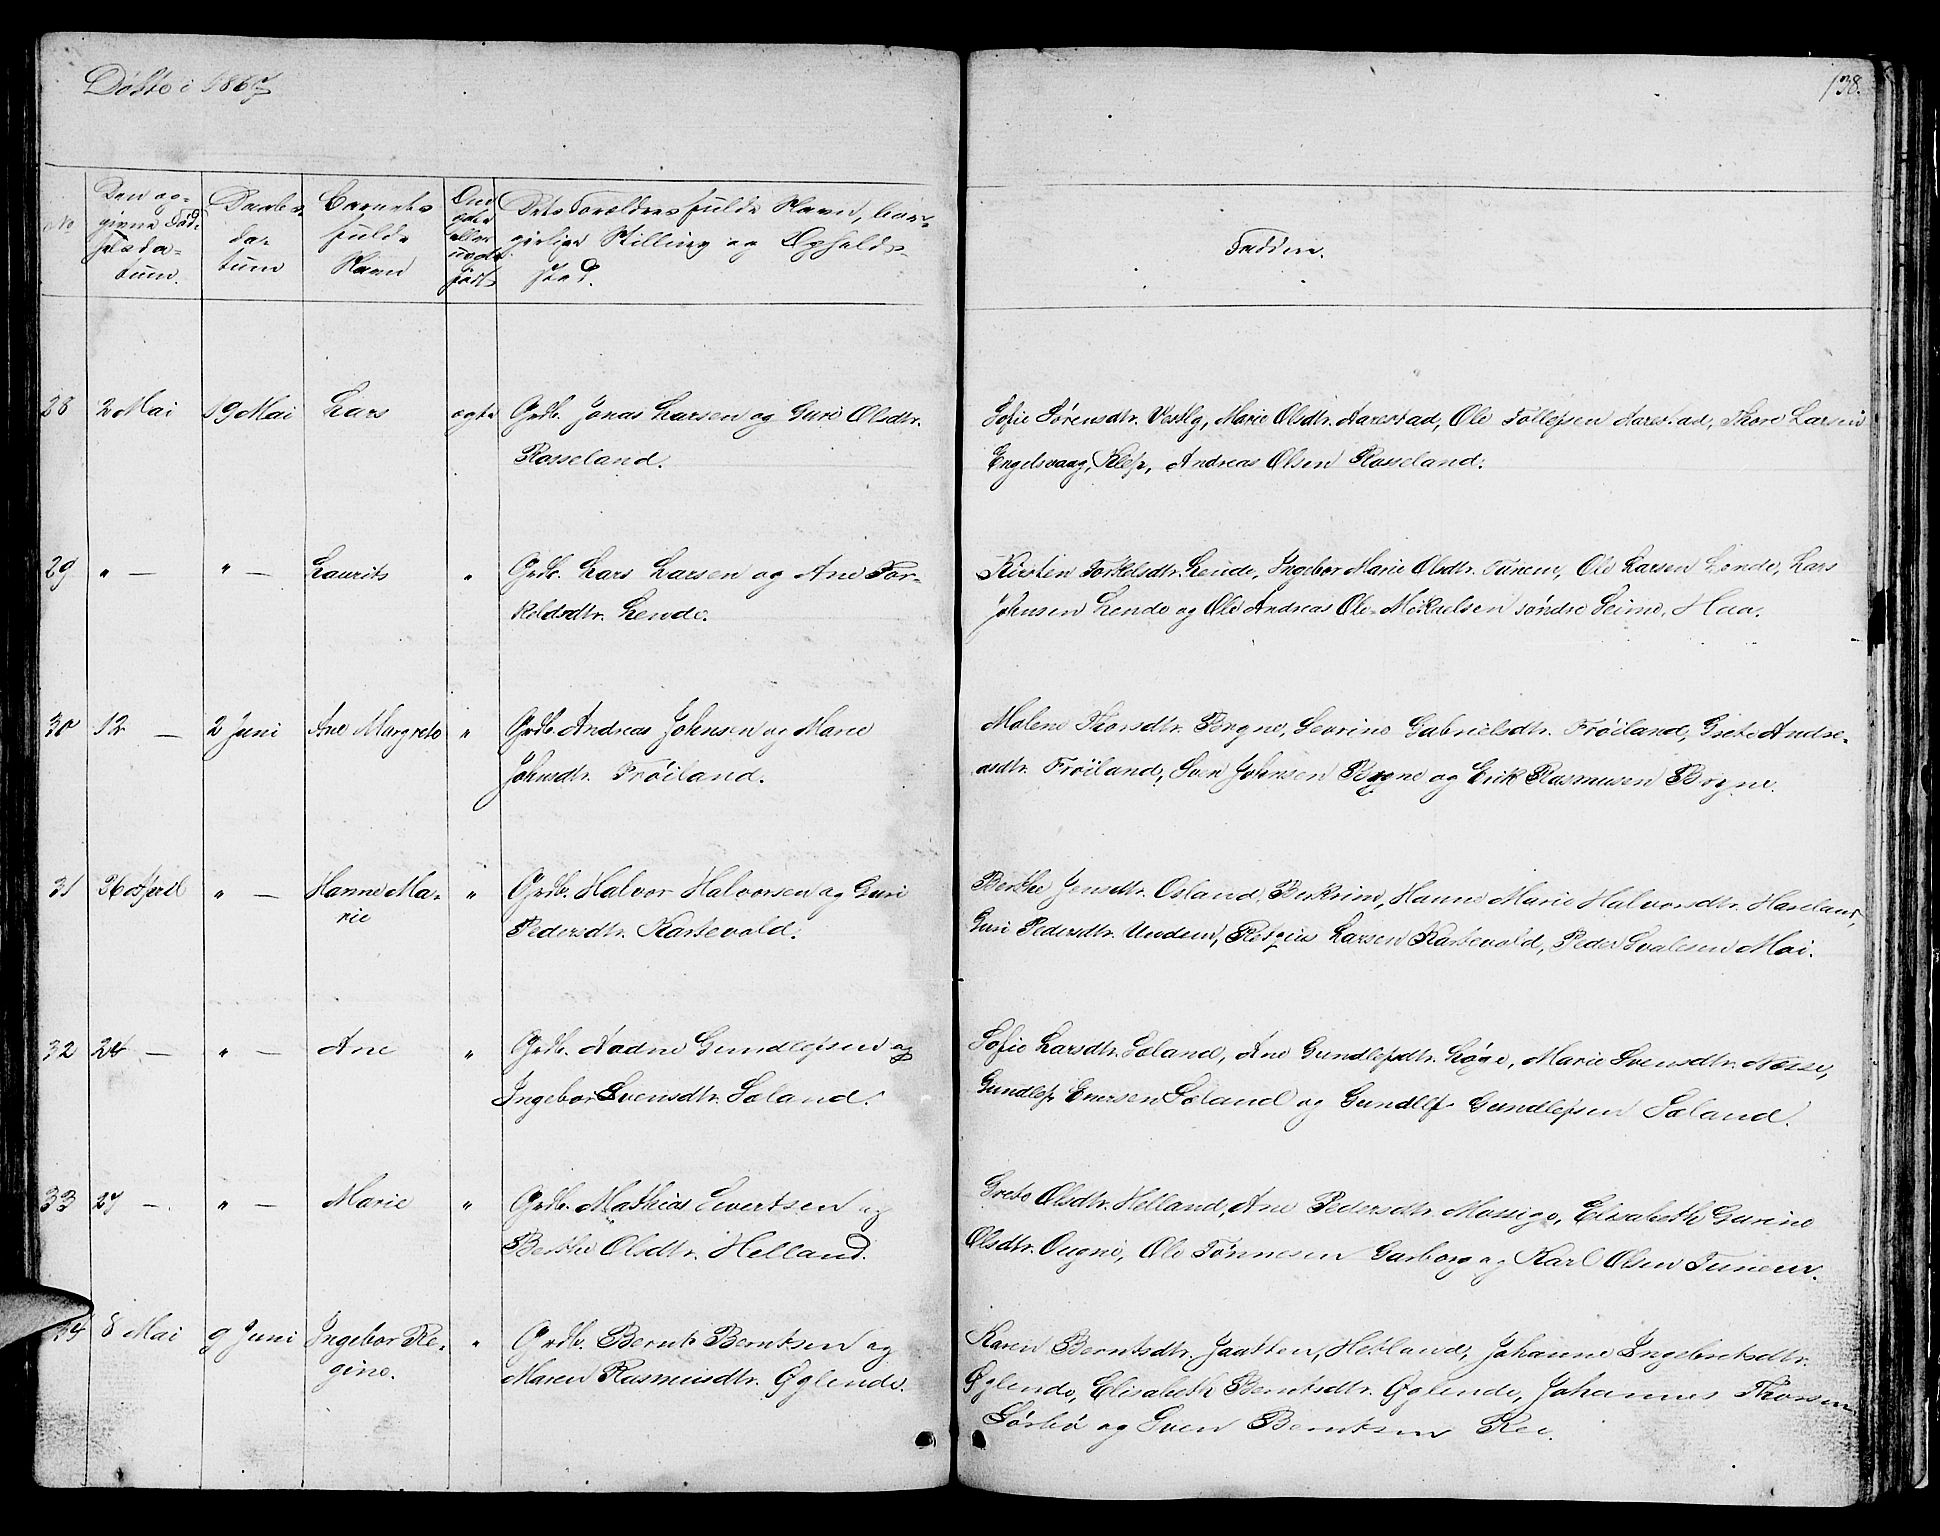 Døbte i 1867
138.
No
Den op-
givne Fød-
selsda-
tum.
Daabs-
da-
tum
Barnets
fulde
Navn
Om
ægte
eller
uægte
født
Dets Forældres fulde Navn, bor-
gerlige Stilling og Opholds-
sted.
Faddere.
28 2 Mai 19 Mai Lars ægte Grdb. Jonas Larsen og Guri Olsdtr.
Rosseland.
Sofie Sørensdtr. Vestly, Marie Olsdtr. Aarestad, Ole Tollefsen Aarestad, Thore Larsen
Engelsvaag, Klep, Andreas Olsen Rosseland.
29 " — " — Laurits " Grdb. Lars Larsen og Ane Tor-
keldsdtr. Lende.
Kirsten Torkelsdtr. Lende, Ingebor Marie Olsdtr. Tunem, Ole Larsen Lende, Lars
Johnsen Lende og Ole Andreas Ole Mikkelsen søndre Seime, Haa.
30 12 — 2 Juni Ane Margrete " Grdb. Andreas Johnsen og Marie
Johnsdtr. Frøiland.
Malene Thorsdtr. Bryne, Severine Gabrielsdtr. Frøiland, Grete Andre-
asdtr. Frøiland, Sven Johnsen Bryne og Erik Rasmusen Bryne.
31 26 April " — Hanne Ma-
rie " Grdb. Halvor Halvorsen og Guri
Pedersdtr. Kartevold.
Berthe Jensdtr. Osland, Berkrim, Hanne Marie Halvorsdtr. Haveland,
Guri Pedersdtr. Undem, Larsen Kartevold, Peder Svalesen Moi.
32 24 — " — Ane " Grdb. Aadne Gundlefsen og
Ingebor Svensdtr. Søland.
Sofie Larsdtr. Søland, Ane Gundlefsdtr. Løge, Marie Svensdtr. Nesse,
Gundlef Enersen Søland og Gundlef Gundlefsen Søland.
33 27 — " — Marie " Grdb. Mathias Evertsen og
Berthe Olsdtr. Helland.
Grete Olsdtr. Helland, Ane Pedersdtr. Mossige, Elisabeth Gurine
Olsdtr. Ougne, Ole Tønnesen Garborg og Karl Olsen Tunem.
34 8 Mai 9 Juni Ingebor Re-
gine. " Grdb. Bernt Berntsen og
Maren Rasmusdtr. Øglende.
Karen Berntsdtr. Jaatten, Hetland, Johanne Ingebretsdtr.
Øglende, Elisabeth Berntsdtr. Øglende, Johannes Thorsen
Sørbø og Sven Berntsen Ree.